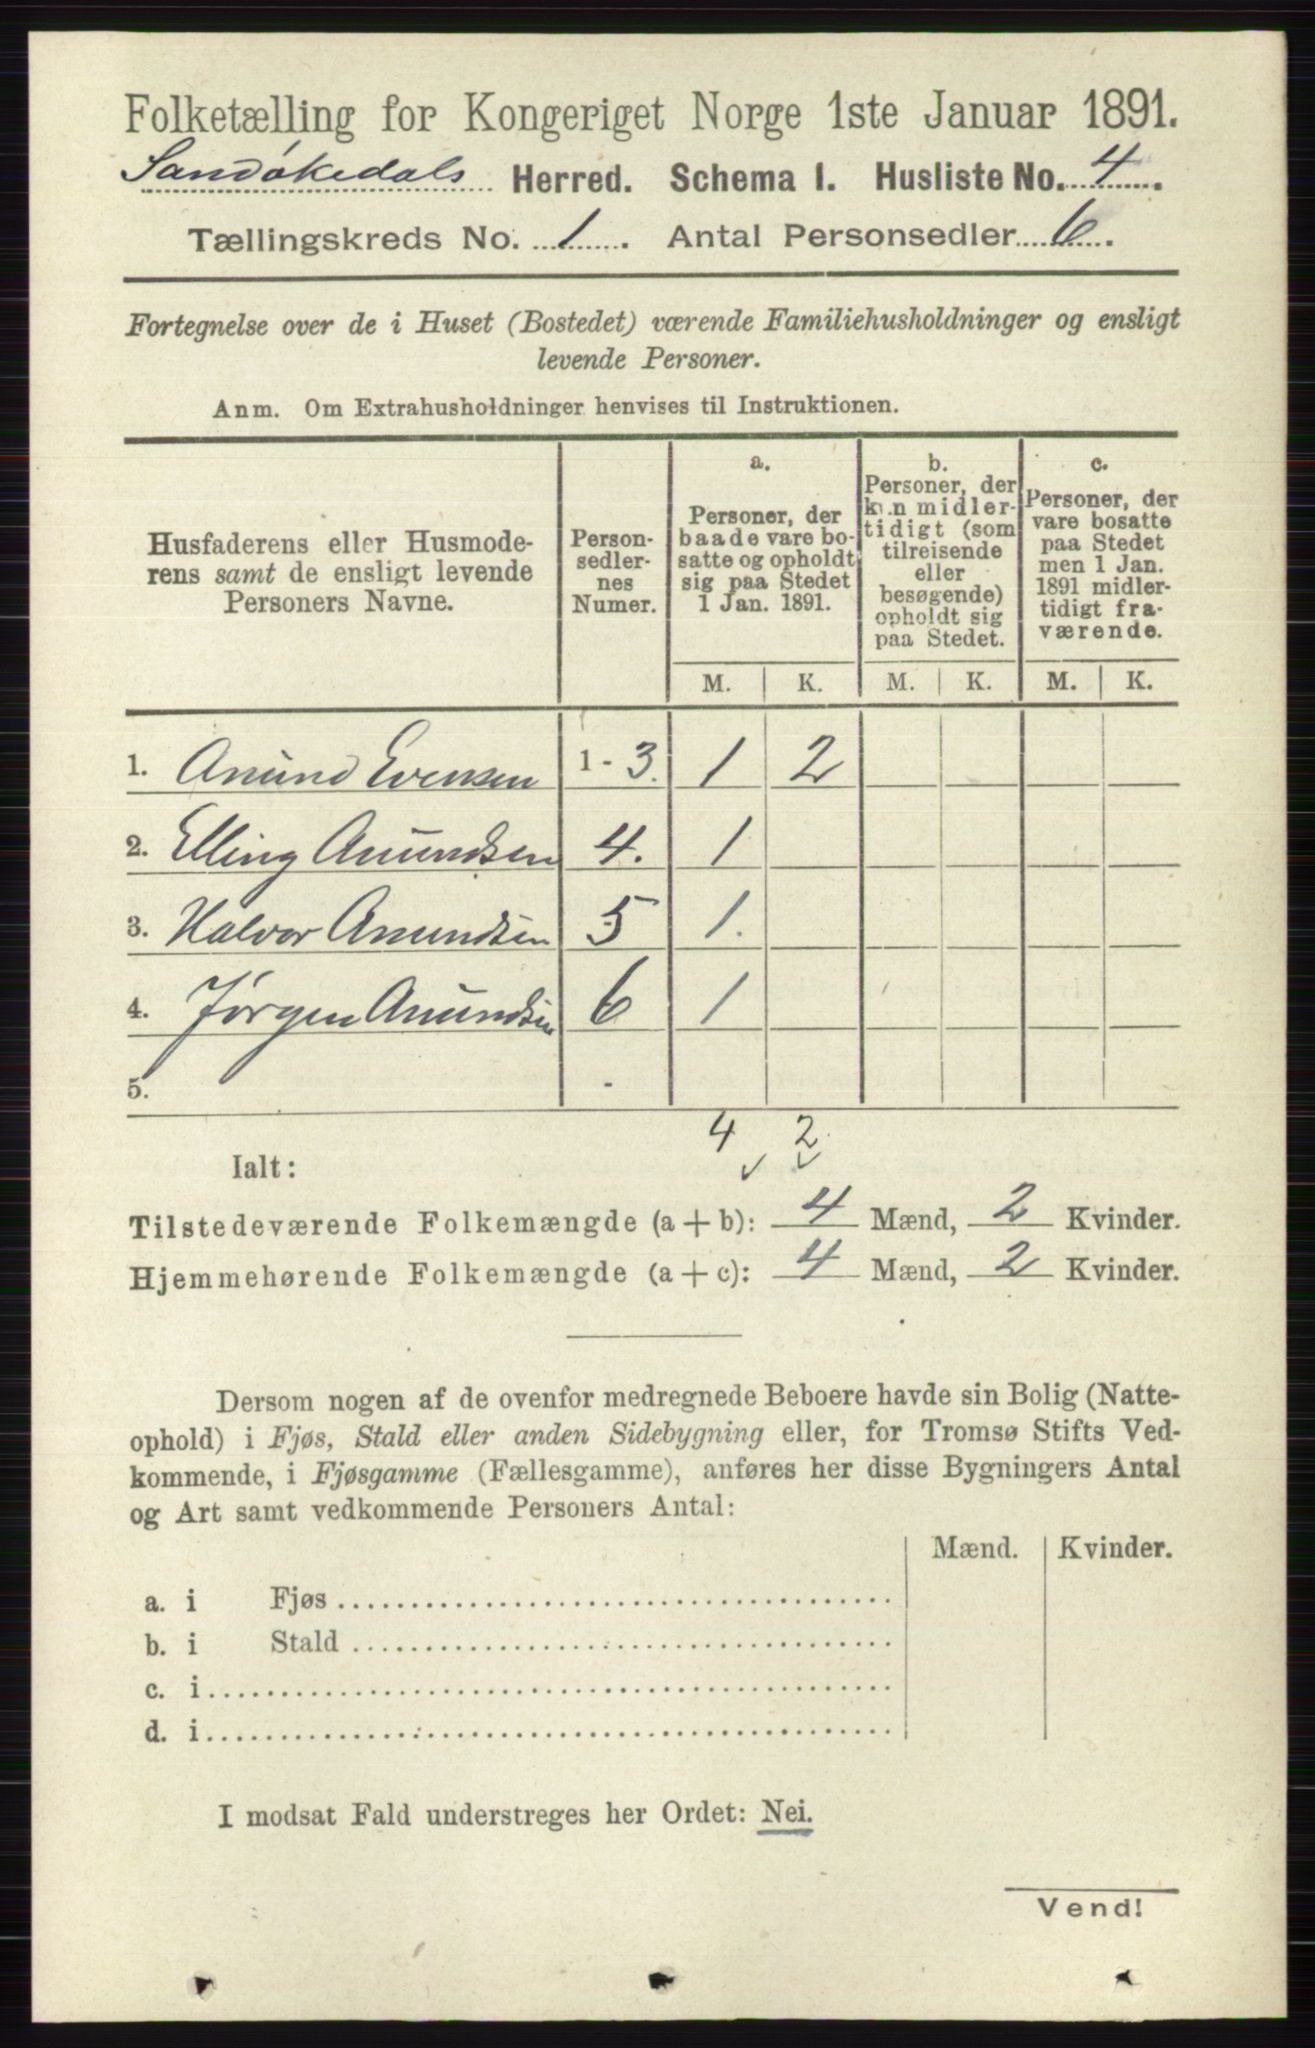 Folketælling for Kongeriget Norge 1ste Januar 1891.
Sandøkedals Herred. Schema I. Husliste No. 4.
Tællingskreds No. 1. Antal Personsedler 6.
Fortegnelse over de i Huset (Bostedet) værende Familiehusholdninger og ensligt
levende Personer.
Anm. Om Extrahusholdninger henvises til Instruktionen.
Husfaderens eller Husmode-
rens samt de ensligt levende
Personers Navne.
Person-
sedler-
nes
Numer.
a.
Personer, der
baade vare bo-
satte og opholdt
sig paa Stedet
1 Jan. 1891.
M. K.
b.
Personer, der
kun midler-
tidigt (som
tilreisende
eller
besøgende)
opholdt sig
paa Stedet.
M. K.
c.
Personer, der
vare bosatte
paa Stedet
men 1 Jan.
1891 midler-
tidigt fra-
værende.
M. K.
1. Anund Evensen 1 - 3. 1 2
2. Elling Anundsen 4. 1
3. Halvor Anundsen 5 1.
4. Jørgen Anundsen 6 1
5. -
4 2
Ialt:
Tilstedeværende Folkemængde (a + b): 4 Mænd, 2 Kvinder.
Hjemmehørende Folkemængde (a + c): 4 Mænd, 2 Kvinder.
Dersom nogen af de ovenfor medregnede Beboere havde sin Bolig (Natte-
ophold) i Fjøs, Stald eller anden Sidebygning eller, for Tromsø Stifts Ved-
kommende, i Fjøsgamme (Fællesgamme), anføres her disse Bygningers Antal
og Art samt vedkommende Personers Antal:
Mænd. Kvinder.
a. i Fjøs
b. i Stald
c. i
d. i
I modsat Fald understreges her Ordet: Nei.
Vend!